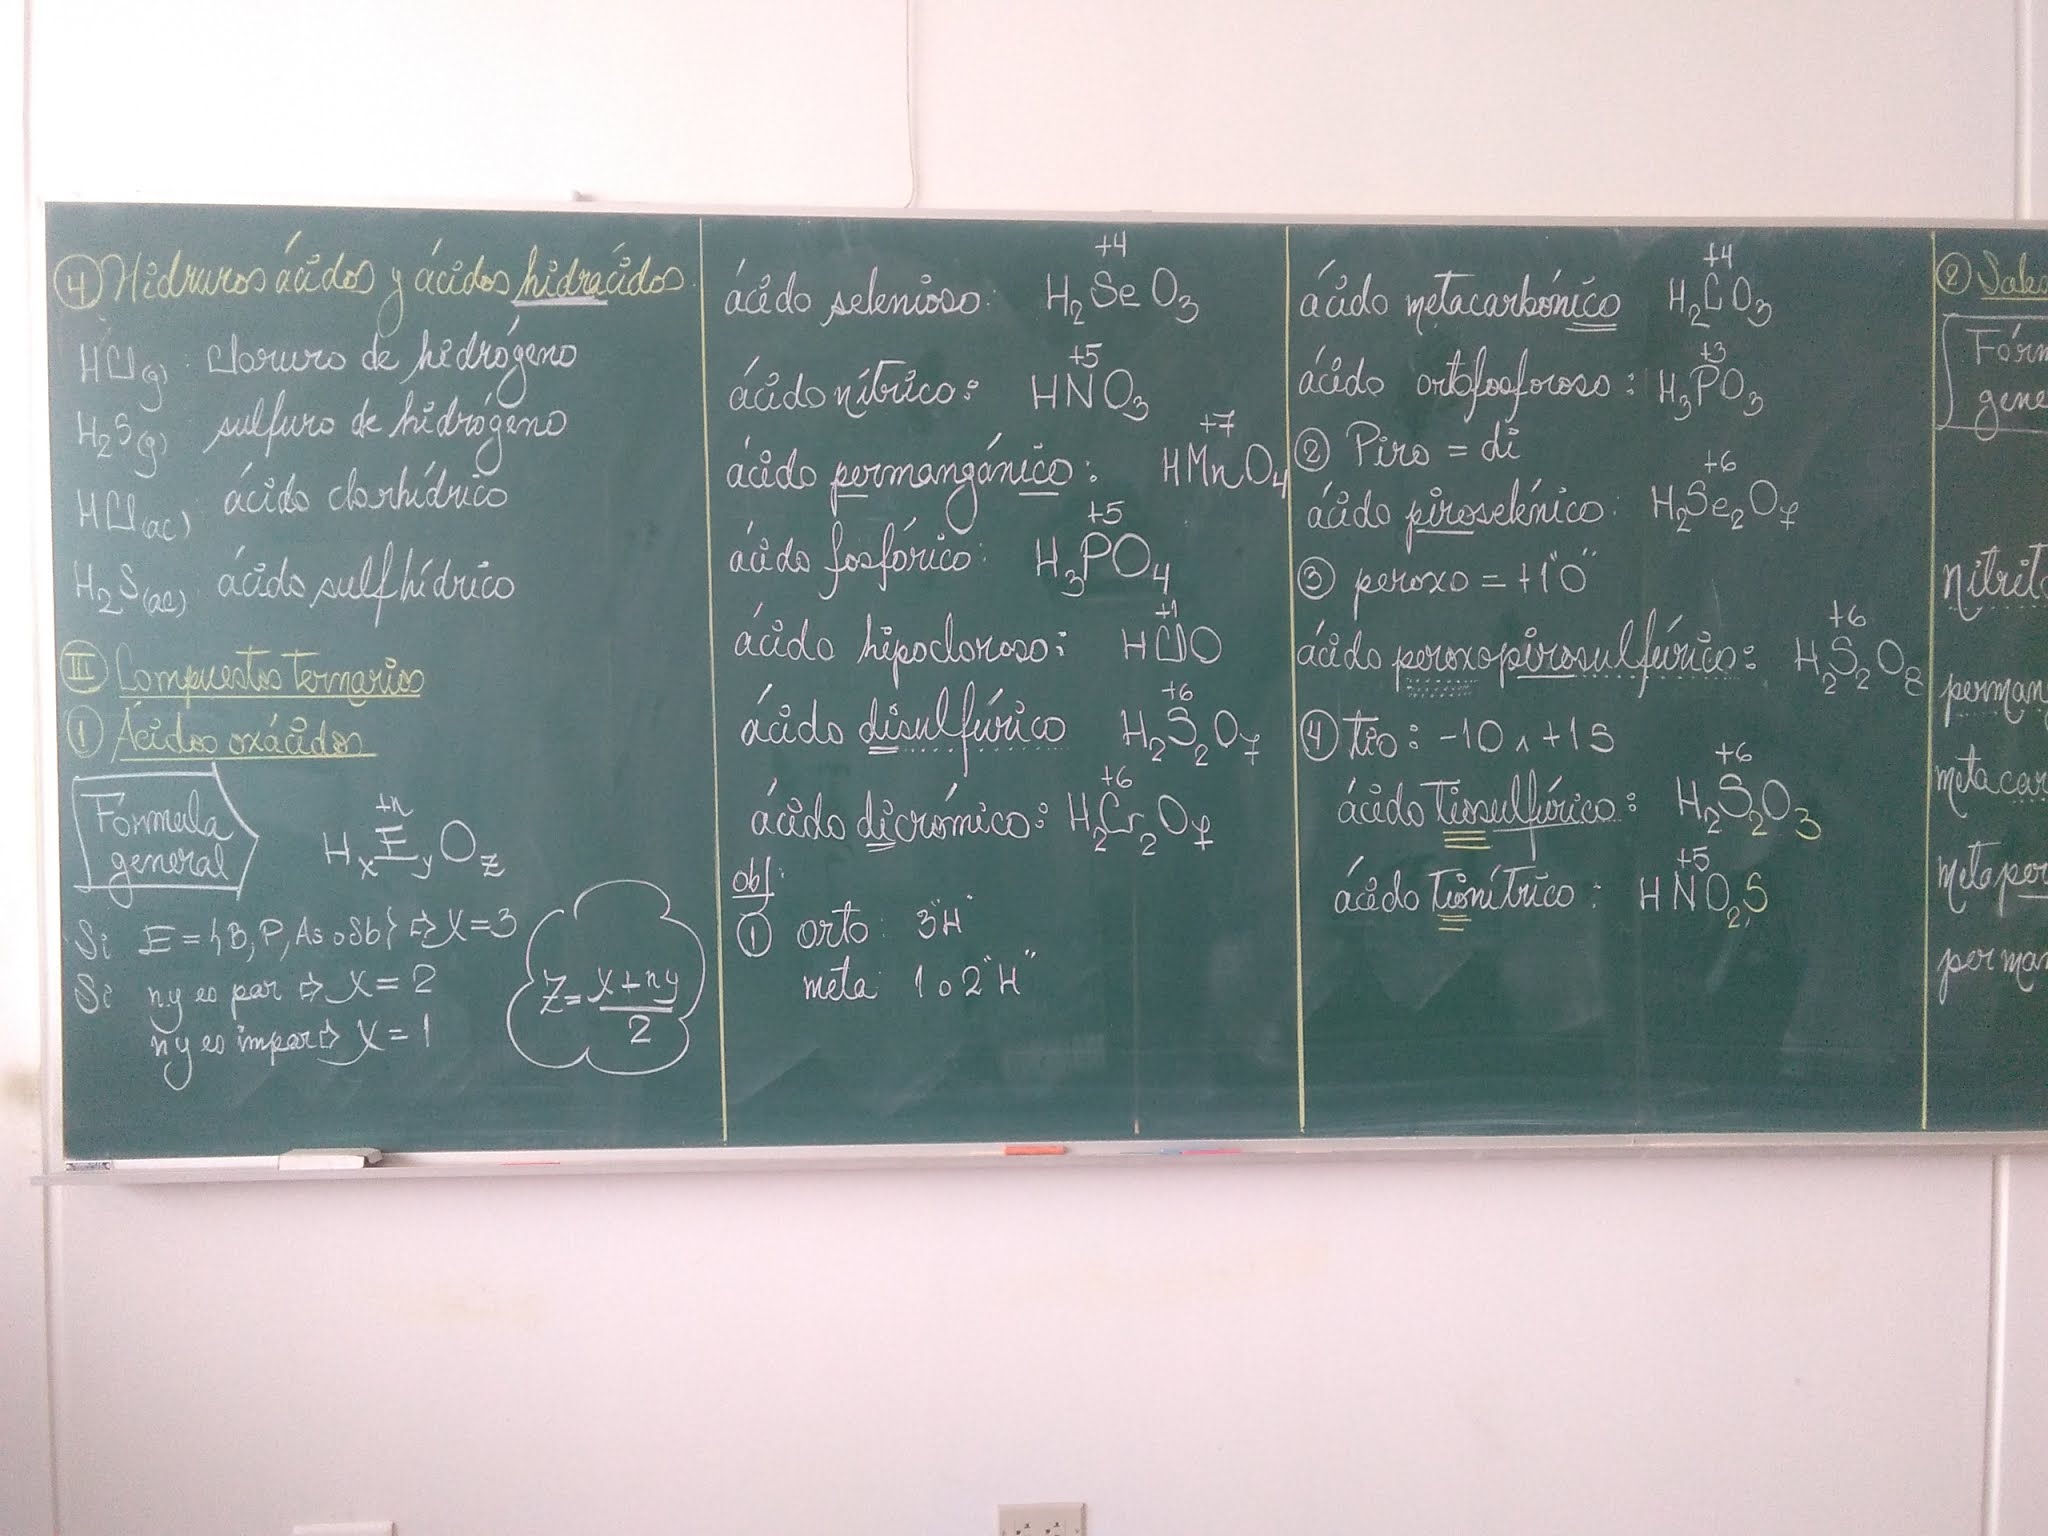 ④ Hidruros ácidos y ácidos hidrácidos.
HCl(g): Cloruro de hidrógeno
H₂S(g) sulfuro de hidrógeno
HCl(ac) ácido clorhídrico
H₂S(ac) ácido sulfhídrico
III Compuestos Ternarios
① Ácidos oxácidos
Fórmula
general
+n
HₓEᵧO_z
Si E = {B, P, As o Sb} ⇒ X=3
Si ny es par ⇒ X = 2
ny es impar ⇒ X = 1
Z = (X + ny)/2
+4
ácido selenioso: H₂SeO₃
+5
ácido nítrico: HNO₃
+7
ácido permangánico: HMnO₄
+5
ácido fosfórico: H₃PO₄
+1
ácido hipocloroso: HClO
+6
ácido disulfúrico H₂S₂O₇
+6
ácido dicrómico: H₂Cr₂O₇
obs:
① orto: 3"H"
meta: 1 o 2"H"
+4
ácido metacarbónico H₂CO₃
+3
ácido ortofosforoso: H₃PO₃
② Piro = di
+6
ácido piroselénico: H₂Se₂O₇
③ peroxo = +1"O"
+6
ácido peroxopirosulfúrico: H₂S₂O₈
④ tio: -1O ∧ +1S
+6
ácido tiosulfúrico: H₂S₂O₃
+5
ácido tionítrico: HNO₂S
②
Fórm
gene
nitrit
perman
metacar
metaper
perman